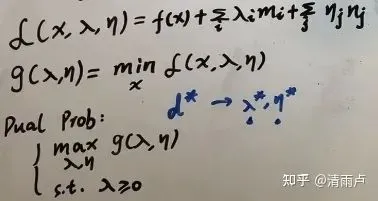 L(x, λ, η) = f(x) + Σ_i λ_i m_i + Σ_j η_j n_j
g(λ,η) = min_x L(x, λ, η)
d* → λ*, η*
Dual Prob:
max_{λ,η} g(λ,η)
s.t. λ≥0
知乎 @清雨卢